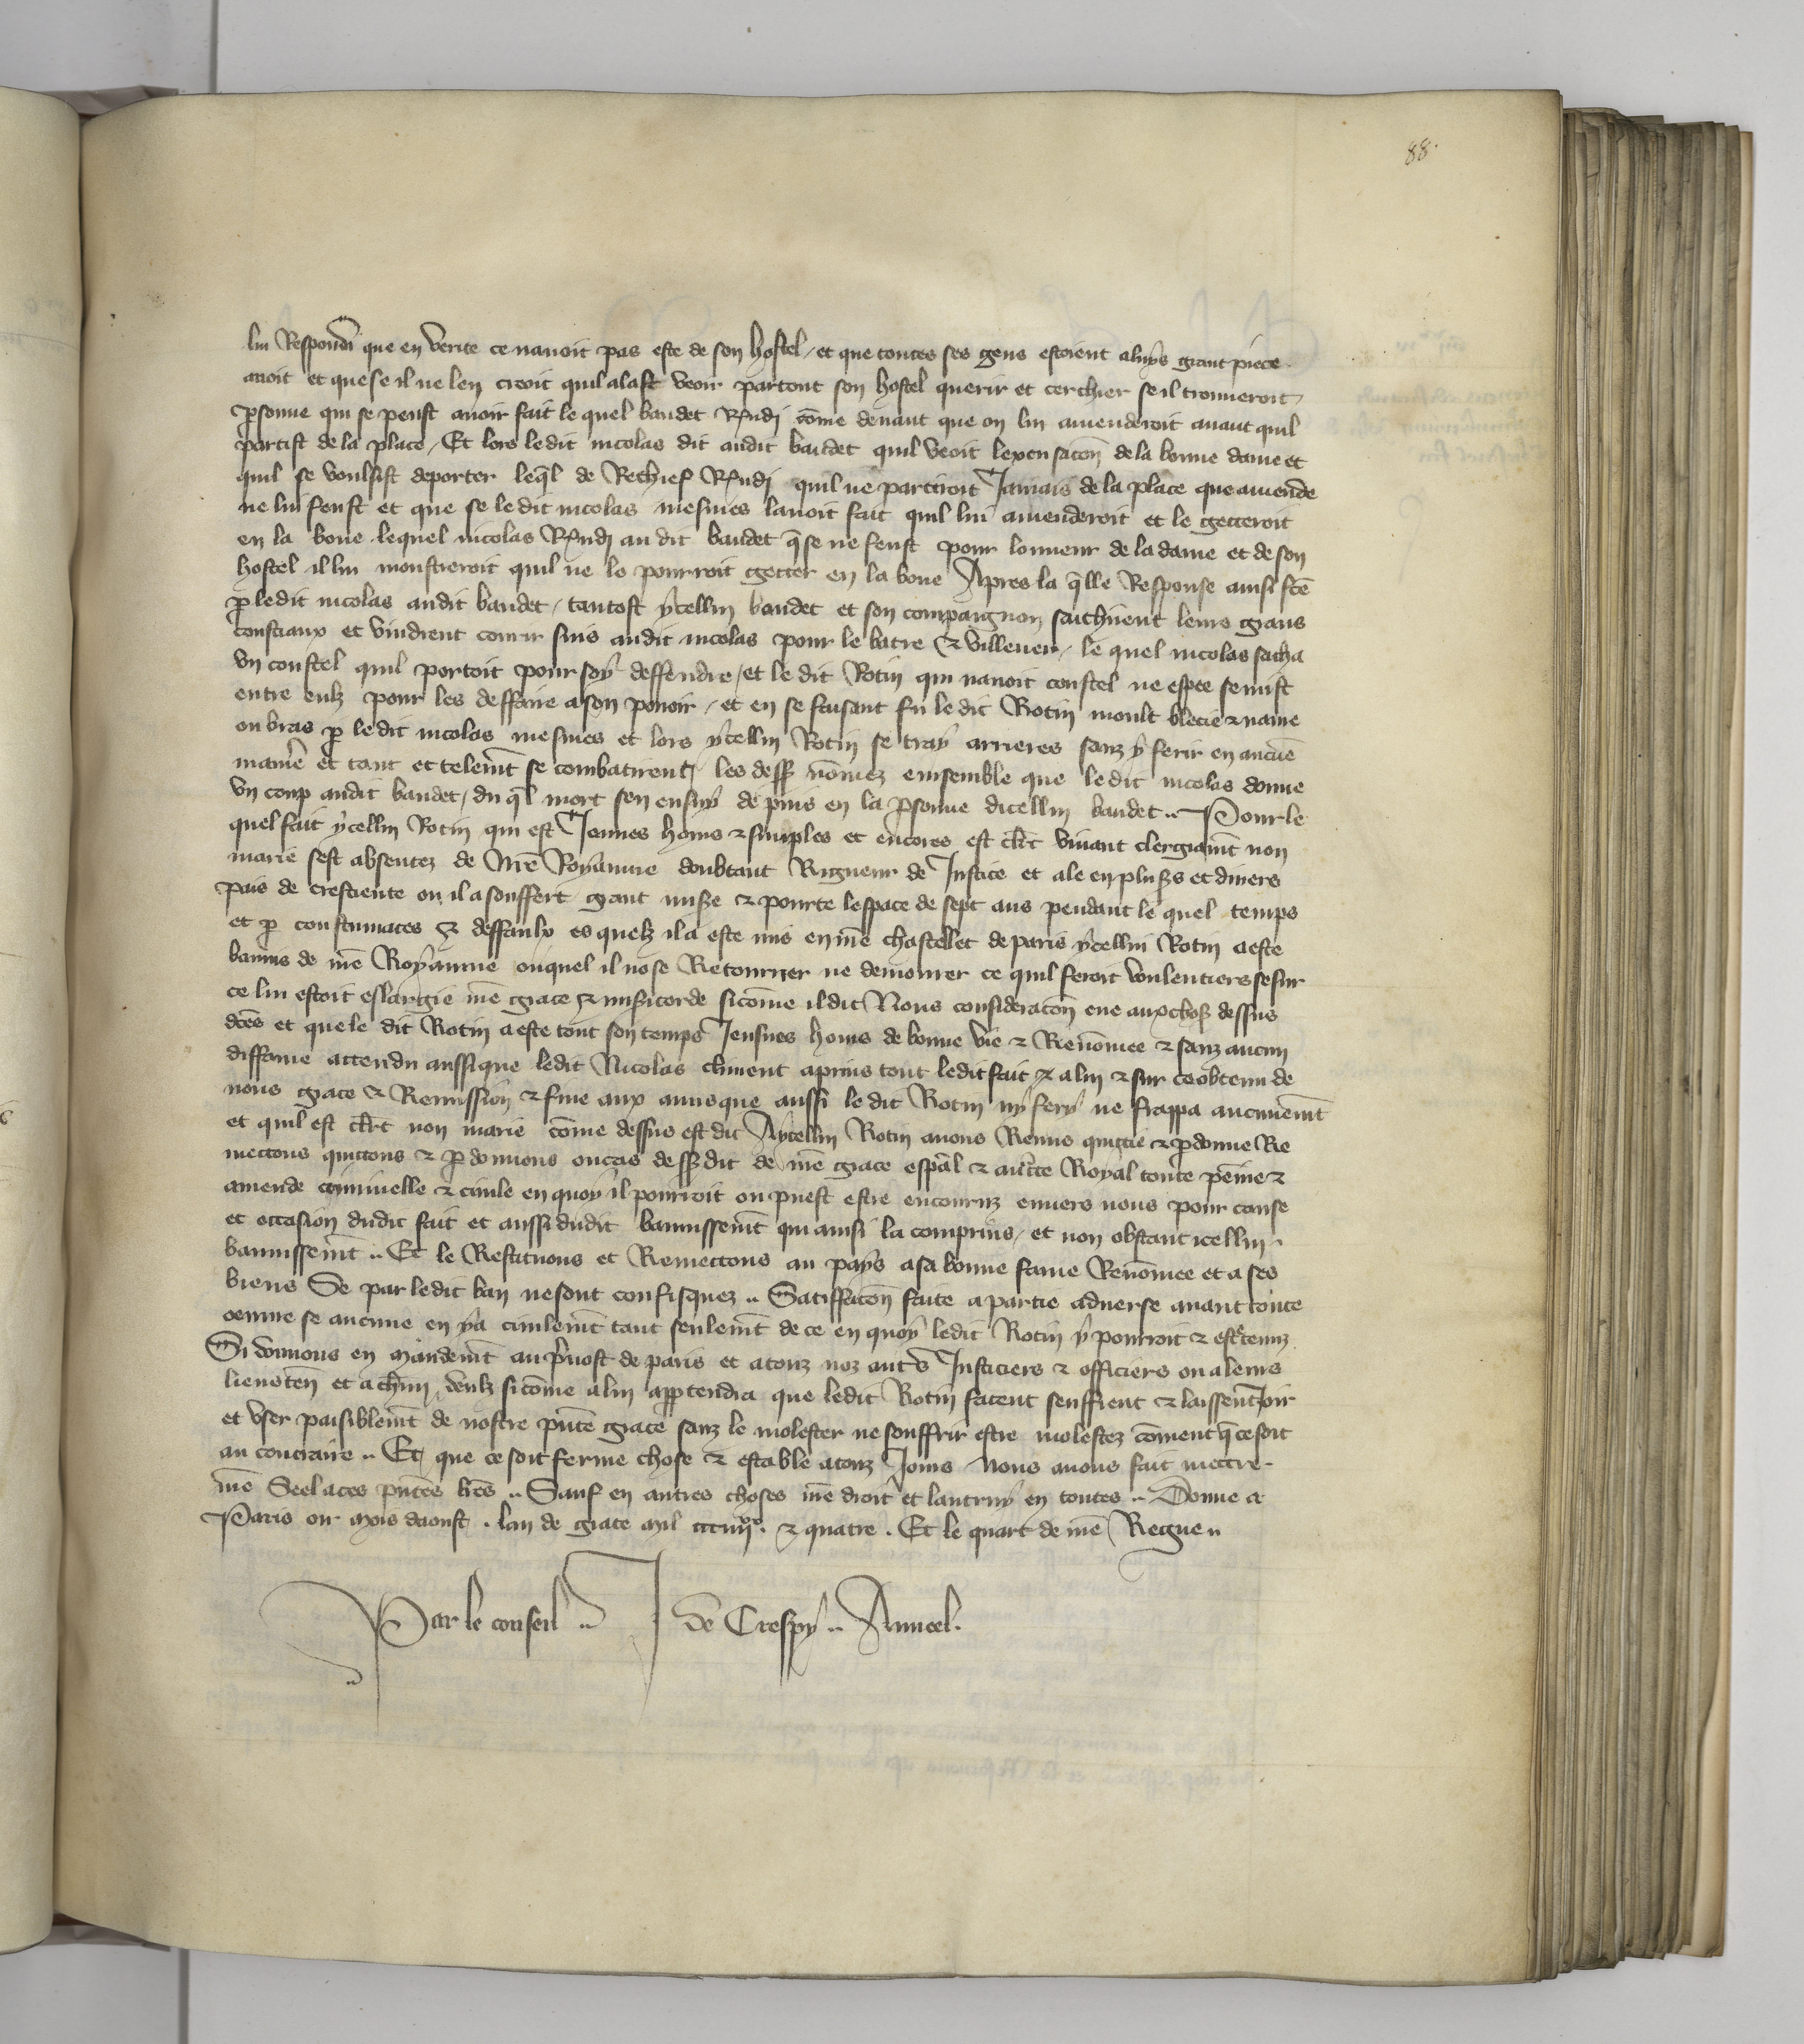 88.
lui Respondi que en verite ce navoit pas este de son hostel / et que toutes ses gens estoient a luys grant piece
avoit et que se il ne len creoit quil alast veoir partout son hostel querir et cerchier se il trouveroit
psonne qui se peust avoir fait le quel baudet Rndi cōme devant que on lui amenderoit avant quil
partist de la place / Et lors ledit nicolas dit audit baudet quil veoit lexcusacōn de la bonne dame et
quil se voulsist deporter leql de Rechief Rndi quil ne partiroit Jamais de la place que amende
ne lui feust et que se le dit nicolas mesmes lavoit fait quil lui amenderoit et le getteroit
en la boue lequel nicolas Rndi au dit baudet q̄ se ne feust pour lonneur de la dame et de son
hostel il lui monstreroit quil ne le pourroit getter en la boue Apres la q̄lle Response ainsi fcē
p ledit nicolas audit baudet / tantost ycellui baudet et son compaignon sachiēnt leurs grans
coustiaux et vindrent courir suis audit nicolas pour le batre & villener / le quel nicolas sacha
un coustel quil portoit pour soy deffendre / et le dit Rotin qui navoit coustel ne espee se mist
entre eulz pour les deffaire a son povoir / et en se faisant fu le dit Rotin moult blecie & navre
ou bras p le dit nicolas mesmes et lors ycellui Rotin se tray arrieres sanz y ferir en aucūe
maniē et tant et telemt se combatirent les dess nōmez ensemble que le dit nicolas donne
un coup audit baudet / du q̄l mort sen ensuy depuis en la psonne dicellui baudet .. Pour le
quel fait ycellui Rotin qui est Jeunes homs & simples et encores est clert vivant clergiaumt non
marie sest absentez de nrē Royaume doubtant Rigueur de Justice et ale en plusrs et divers
pais de crestiente ou il a souffert grant misē & povrete lespace de sept ans pendant le quel temps
et p contumaces & deffaulx es quelz il a este mis en nrē chastellet de paris ycellui Rotin a este
bannis de nrē Royaume ouquel il nose Retourner ne demourer ce quil feroit voulentiers se sur
ce lui estoit eslargie nrē grace & misicorde sicōme il dit Nous consideracōn eue aux chos dessus
dcēs et que le dit Rotin a este tout son temps Jeusnes homs de bonne vie & Renōmee & sanz aucun
diffame attendu aussi que ledit Nicolas climent a prins tout ledit fait a lui & sur ce obtenu de
nous grace & Remission & sine aux amis que aussi le dit Rotin ny fery ne frappa aucunemt
et quil est clert non marie cōme dessus est dit A ycellui Rotin avons Remis quittie & pdonne Re
mettons quittons & pdonnons ou cas dessdit de nrē grace espāl & aucte Royal toute peine &
amende criminelle & civile en quoy il pourroit ou puest estre encouruz envers nous pour cause
et occasion dudit fait et aussi dudit bannissemt qui ainsi la comprins / et non obstant icellui
bannissemt .. Et le Restituons et Remettons au pays a sa bonne fame Renōmee et a ses
biens Se par ledit ban ne sont confisquez .. Satiffacōn faite a partie adverse avant toute
oeuvre se aucune en y a civilemt tant seulemt de ce en quoy ledit Rotin y pourroit & estre tenuz
Si donnons en mandemt au pvost de paris et a touz noz autrs Justiciers & officiers ou a leurs
lieuxten et a chūn deulz sicōme a lui apptendra que ledit Rotin facent seuffrent & laissent Joir
et user paisiblemt de nostre pntē grace sanz le molester ne souffrir estre molestez cōment q̄ ce soit
au contraire .. Et que ce soit ferme chose & estable a touz Jours Nous avons fait mettre
nrē Seel a ces pntēs lrēs .. Sauf en autres choses nrē droit et lautruy en toutes .. Donne a
Paris ou mois daoust . lan de grace mil ccciiiixx & quatre . Et le quart de nrē Regne ..
Par le conseil .. J de Crespy .. Anncel.